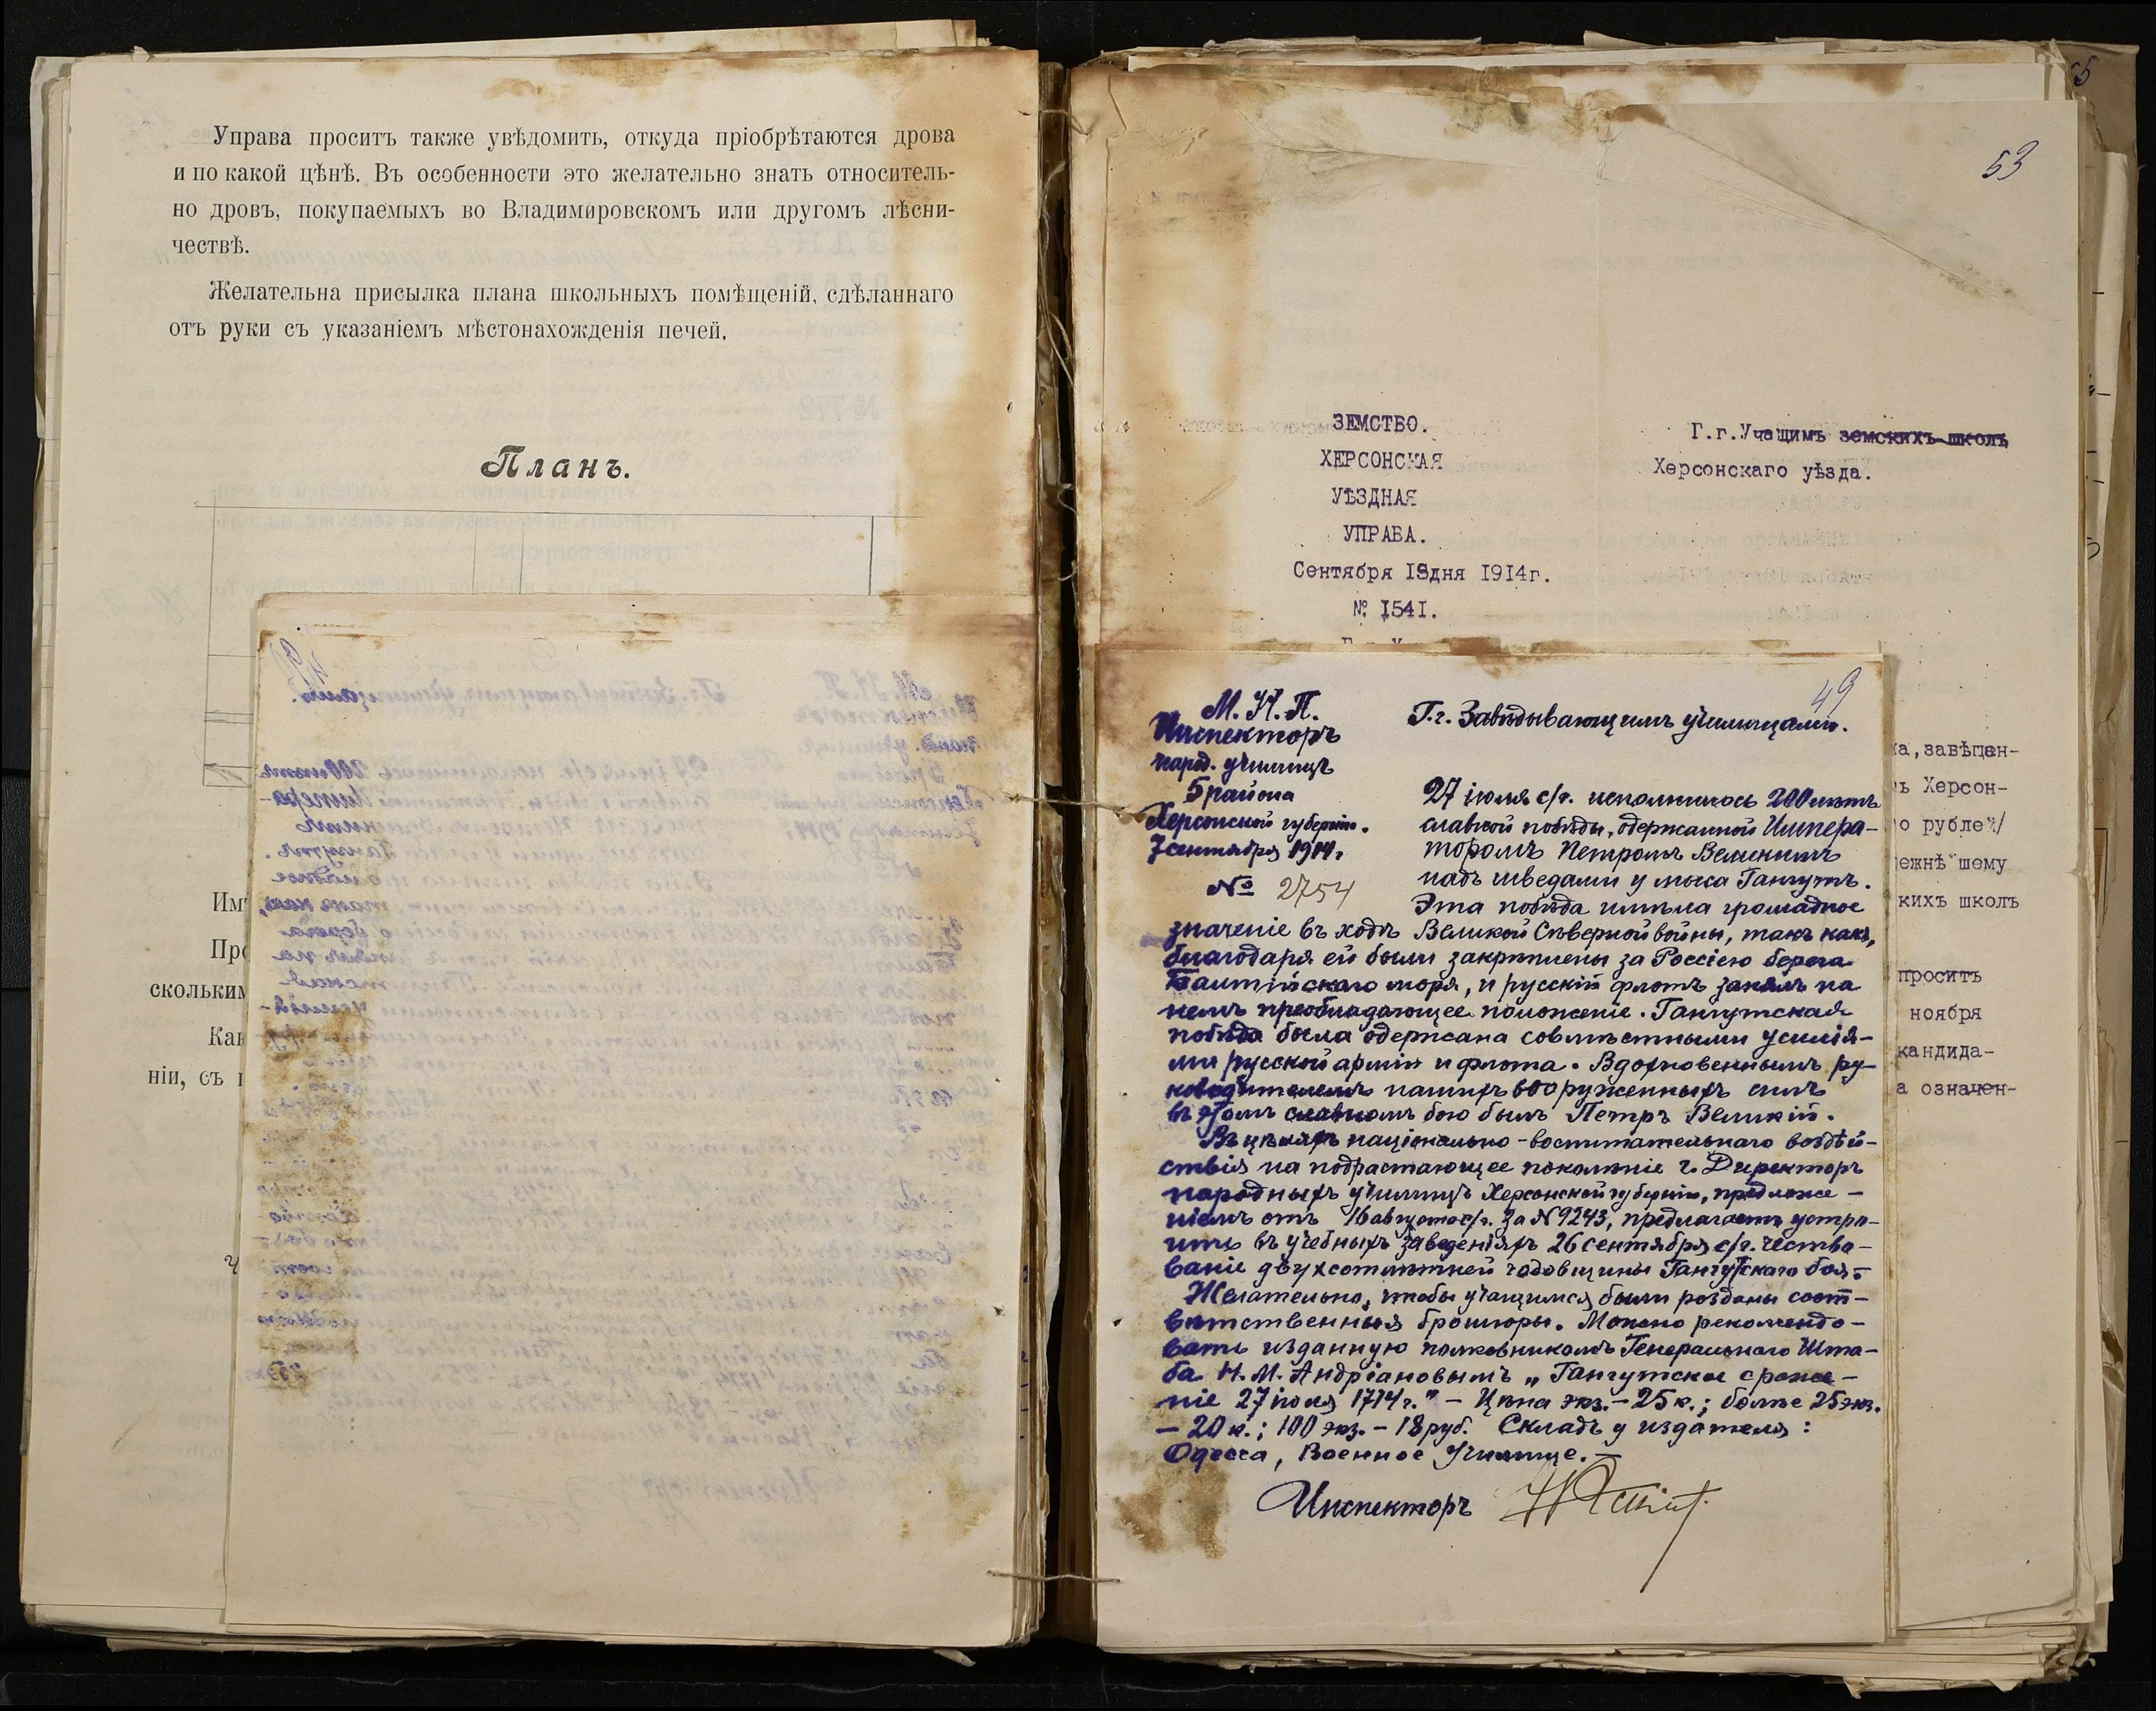 Управа проситъ также увѣдомить, откуда пріобрѣтаются дрова
и по какой цѣнѣ. Въ особенности это желательно знать относитель-
но дровъ, покупаемыхъ во Владимировскомъ или другомъ лѣсни-
чествѣ.
Желательна присылка плана школьныхъ помѣщеній, сдѣланнаго
отъ руки съ указаніемъ мѣстонахожденія печей.
Планъ.
Им
Пр
скольким
Как
ніи, съ
53
ЗЕМСТВО.
ХЕРСОНСКАЯ
УѢЗДНАЯ
УПРАВА.
Сентября 18дня 1914г.
№ 1541.
Г.г.Учащимъ земскихъ школъ
Херсонскаго уѣзда.
а,завѣщан-
ъ Херсон-
о рублей/
ежнѣ шему
кихъ школъ
проситъ
ноября
кандида-
а означен-
49
М. Н. П.
Инспекторъ
народ. училищъ
5 района
Херсонской губерніи.
7 сентября 1914 г.
№ 2754
Г.г. Завѣдывающимъ училищами.
27 іюля с/г. исполнилось 200 лѣтъ
славной побѣды, одержанной Импера-
торомъ Петромъ Великимъ
надъ шведами у мыса Гангутъ.
Эта побѣда имѣла громадное
значеніе въ ходѣ Великой Сѣверной войны, такъ какъ,
благодаря ей были закрѣплены за Россіею берега
Балтійскаго моря, и русскій флотъ занялъ на
немъ преобладающее положеніе. Гангутская
побѣда была одержана совмѣстными усилія-
ми русской арміи и флота. Вдохновеннымъ ру-
ководителемъ нашихъ вооруженныхъ силъ
въ этомъ славномъ бою былъ Петръ Великій.
Въ цѣляхъ національно-воспитательнаго воздѣй-
ствія на подрастающее поколѣніе г. Директоръ
народныхъ училищъ Херсонской губерніи, предложе-
ніемъ отъ 16 августа с/г. за № 9243, предлагаетъ устро-
ить въ учебныхъ заведеніяхъ 26 сентября с/г. чество-
ваніе двухсотлѣтней годовщины Гангутскаго боя.-
Желательно, чтобы учащимся были розданы соот-
вѣтственныя брошюры. Можно рекомендо-
вать изданную полковникомъ Генеральнаго Шта-
ба Н. М. Андріановымъ „Гангутское сраже-
ніе 27 іюля 1714 г." - Цѣна экз. - 25 к.; болѣе 25 экз.
- 20 к.; 100 экз. - 18 руб. Складъ у издателя:
Одесса, Военное Училище. -
Инспекторъ